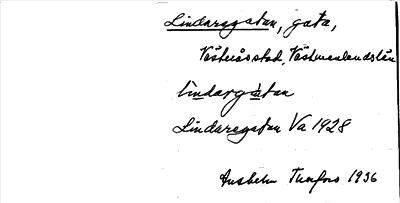 Lindaregatan, gata,
Västerås stad, Västmanlands län
lìndargàtan
Lindaregatan Va 1928
Anshelm Tunfors 1936